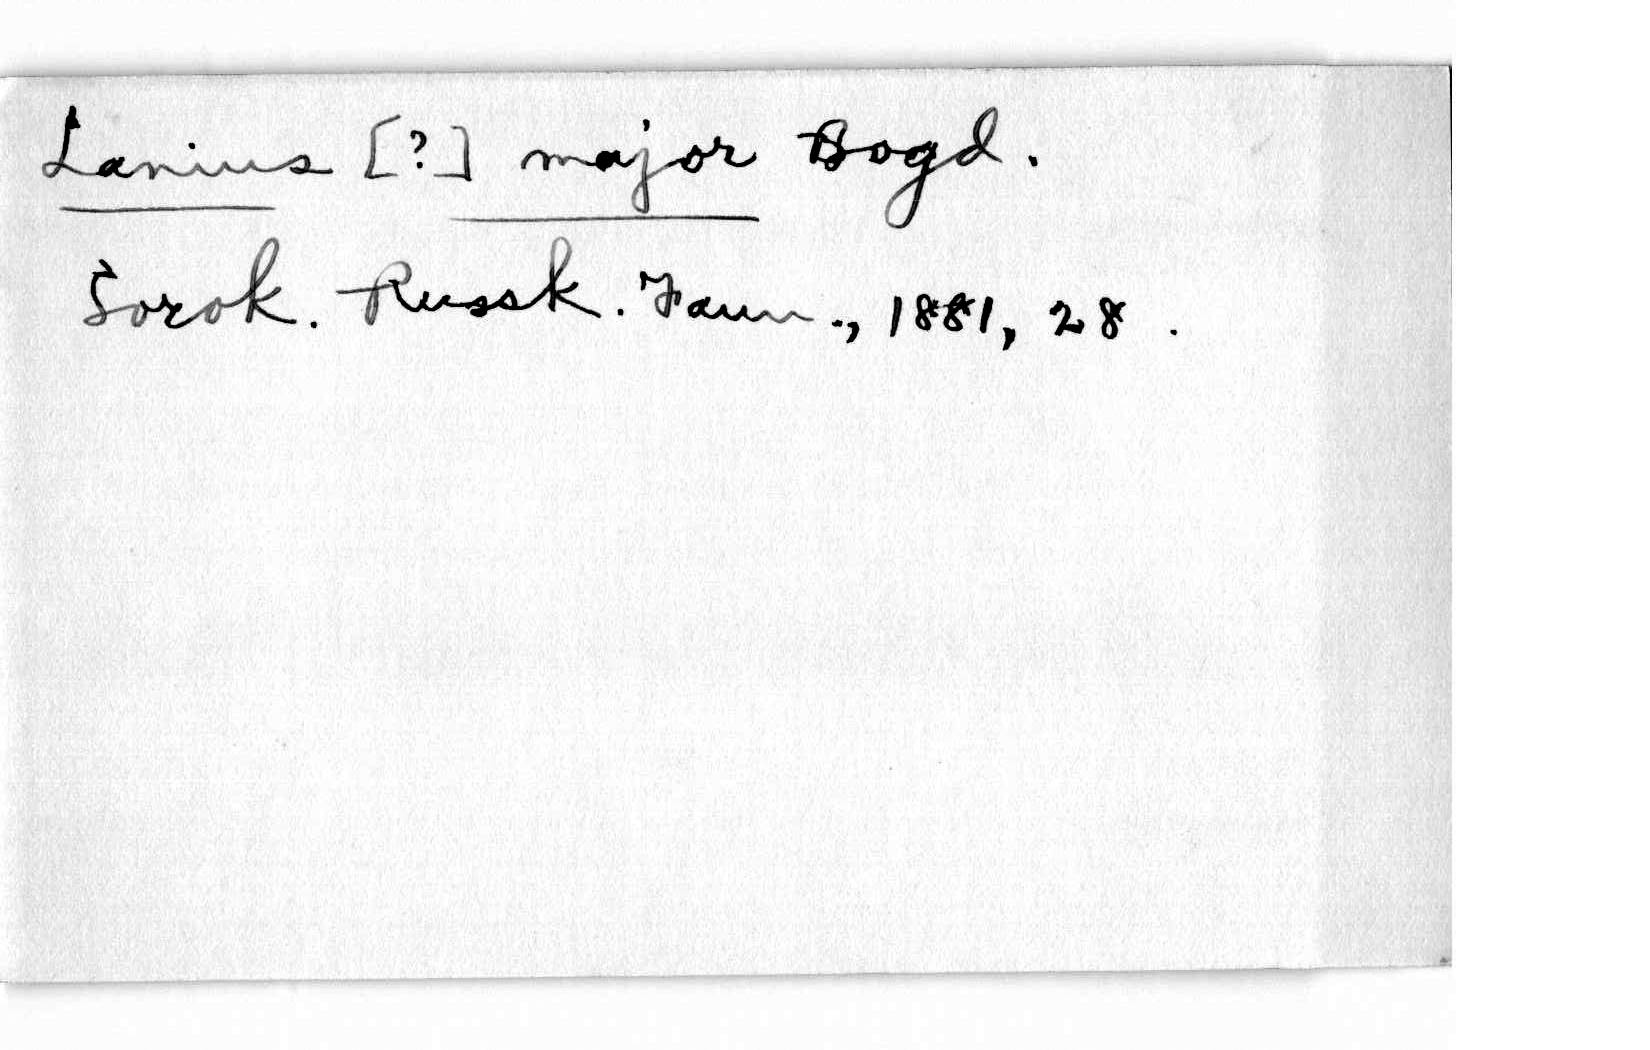 Lanius [?] major Bogd.
Sorok. Russk. Faun., 1881, 28.